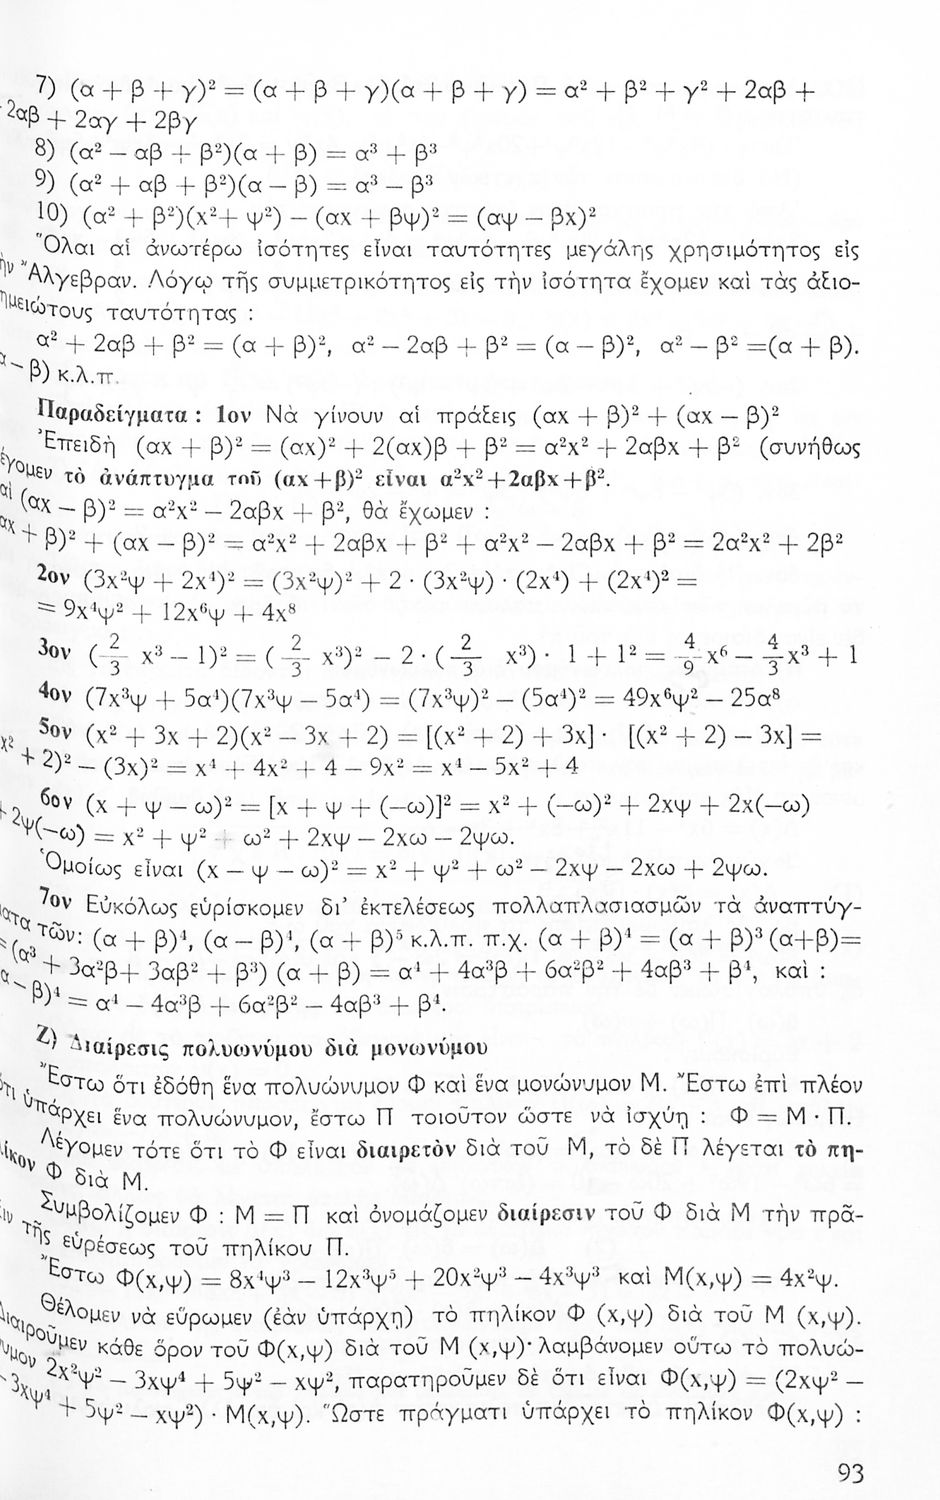 7) (α + β + γ)² = (α + β + γ)(α + β + γ) = α² + β² + γ² + 2αβ +
2αβ + 2αγ + 2βγ
8) (α² — αβ + β²)(α + β) = α³ + β³
9) (α² + αβ + β²)(α — β) = α³ — β³
10) (α² + β²)(x²+ ψ²) — (αx + βψ)² = (αψ — βx)²
Ὅλαι αἱ ἀνωτέρω ἰσότητες εἶναι ταυτότητες μεγάλης χρησιμότητος εἰς
ὴν Ἄλγεβραν. Λόγῳ τῆς συμμετρικότητος εἰς τὴν ἰσότητα ἔχομεν καὶ τὰς ἀξιο-
ημειώτους ταυτότητας :
α² + 2αβ + β² = (α + β)², α² — 2αβ + β² = (α — β)², α² — β² =(α + β).
— β) κ.λ.π.
Παραδείγματα : 1ον Νὰ γίνουν αἱ πράξεις (αx + β)² + (αx — β)²
Ἐπειδὴ (αx + β)² = (αx)² + 2(αx)β + β² = α²x² + 2αβx + β² (συνήθως
έγομεν τὸ ἀνάπτυγμα τοῦ (αx+β)² εἶναι α²x²+2αβx+β².
αὶ (αx — β)² = α²x² — 2αβx + β², θὰ ἔχωμεν :
αx + β)² + (αx — β)² = α²x² + 2αβx + β² + α²x² — 2αβx + β² = 2α²x² + 2β²
2ον (3x²ψ + 2x⁴)² = (3x²ψ)² + 2 · (3x²ψ) · (2x⁴) + (2x⁴)² =
= 9x⁴ψ² + 12x⁶ψ + 4x⁸
3ον (2/3 x³ — 1)² = (2/3 x³)² — 2 · (2/3 x³) · 1 + 1² = 4/9 x⁶ — 4/3 x³ + 1
4ον (7x³ψ + 5α⁴)(7x³ψ — 5α⁴) = (7x³ψ)² — (5α⁴)² = 49x⁶ψ² — 25α⁸
5ον (x² + 3x + 2)(x² — 3x + 2) = [(x² + 2) + 3x] · [(x² + 2) — 3x] =
x² + 2)² — (3x)² = x⁴ + 4x² + 4 — 9x² = x⁴ — 5x² + 4
6ον (x + ψ — ω)² = [x + ψ + (—ω)]² = x² + (—ω)² + 2xψ + 2x(—ω)
+ 2ψ(—ω) = x² + ψ² + ω² + 2xψ — 2xω — 2ψω.
Ὁμοίως εἶναι (x — ψ — ω)² = x² + ψ² + ω² — 2xψ — 2xω + 2ψω.
7ον Εὐκόλως εὑρίσκομεν δι’ ἐκτελέσεως πολλαπλασιασμῶν τὰ ἀναπτύγ-
ατα τῶν: (α + β)⁴, (α — β)⁴, (α + β)⁵ κ.λ.π. π.χ. (α + β)⁴ = (α + β)³ (α+β)=
=(α³ + 3α²β+ 3αβ² + β³) (α + β) = α⁴ + 4α³β + 6α²β² + 4αβ³ + β⁴, καὶ :
α — β)⁴ = α⁴ — 4α³β + 6α²β² — 4αβ³ + β⁴.
Ζ) Διαίρεσις πολυωνύμου διὰ μονωνύμου
Ἔστω ὅτι ἐδόθη ἕνα πολυώνυμον Φ καὶ ἕνα μονώνυμον Μ. Ἔστω ἐπὶ πλέον
ὅτι ὑπάρχει ἕνα πολυώνυμον, ἔστω Π τοιοῦτον ὥστε νὰ ἰσχύῃ : Φ = Μ · Π.
Λέγομεν τότε ὅτι τὸ Φ εἶναι διαιρετὸν διὰ τοῦ Μ, τὸ δὲ Π λέγεται τὸ πη-
λίκον Φ διὰ Μ.
Συμβολίζομεν Φ : Μ = Π καὶ ὀνομάζομεν διαίρεσιν τοῦ Φ διὰ Μ τὴν πρᾶ-
ιν τῆς εὑρέσεως τοῦ πηλίκου Π.
Ἔστω Φ(x,ψ) = 8x⁴ψ³ — 12x³ψ⁵ + 20x²ψ³ — 4x³ψ³ καὶ Μ(x,ψ) = 4x²ψ.
Θέλομεν νὰ εὕρωμεν (ἐὰν ὑπάρχῃ) τὸ πηλίκον Φ (x,ψ) διὰ τοῦ Μ (x,ψ).
Διαιροῦμεν κάθε ὅρον τοῦ Φ(x,ψ) διὰ τοῦ Μ (x,ψ)· λαμβάνομεν οὕτω τὸ πολυώ-
υμον 2x²ψ² — 3xψ⁴ + 5ψ² — xψ², παρατηροῦμεν δὲ ὅτι εἶναι Φ(x,ψ) = (2xψ² —
—3xψ⁴ + 5ψ² — xψ²) · Μ(x,ψ). Ὥστε πράγματι ὑπάρχει τὸ πηλίκον Φ(x,ψ) :
93